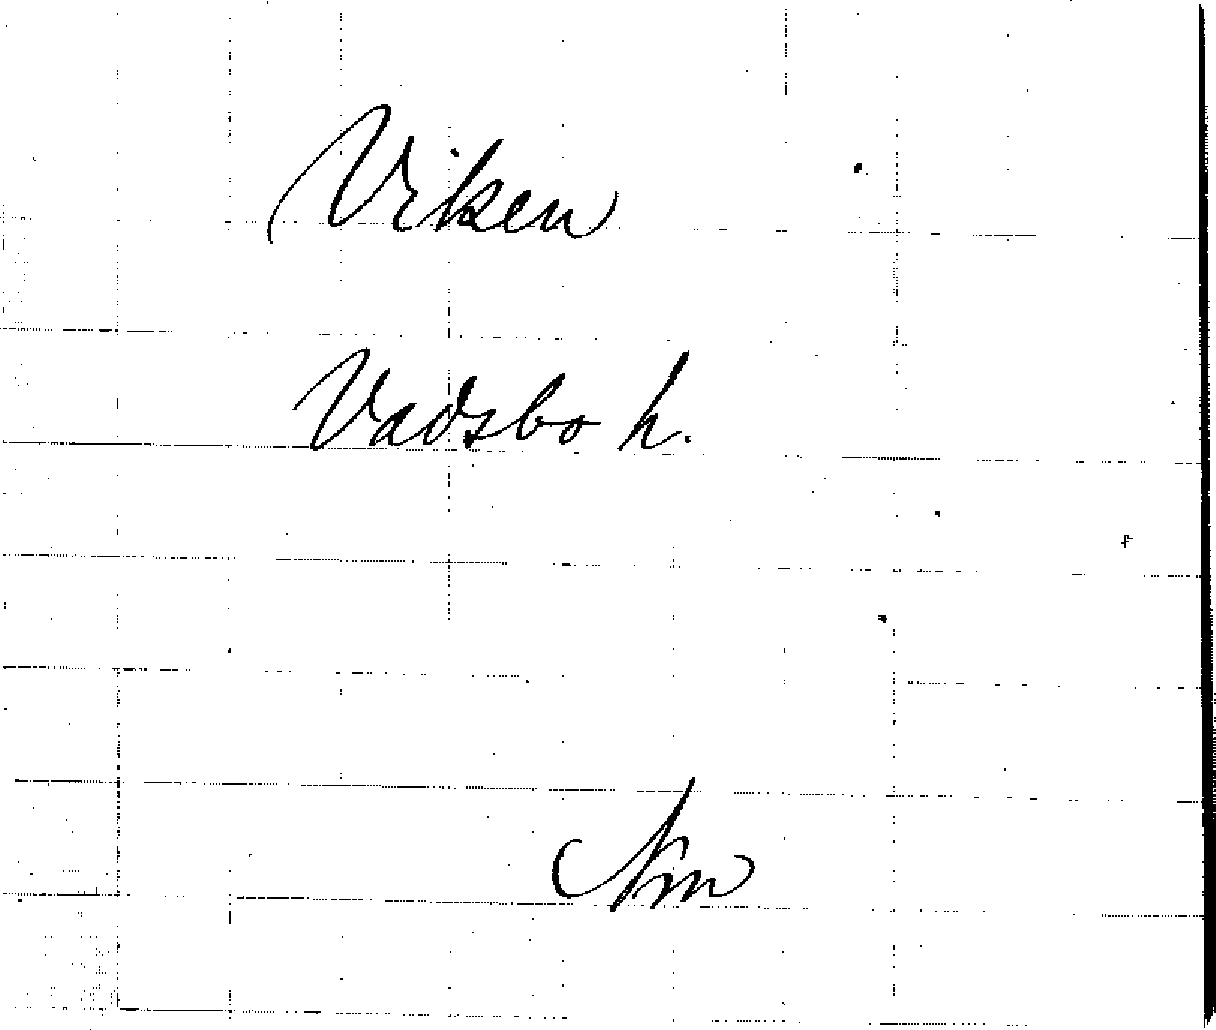 Viken
Vadsbo h.